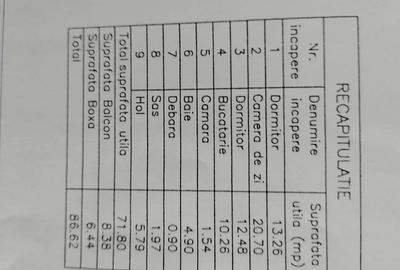 RECAPITULATIE
Nr. incapere Denumire incapere Suprafata utila (mp)
1 Dormitor 13.26
2 Camera de zi 20.70
3 Dormitor 12.48
4 Bucatarie 10.26
5 Camara 1.54
6 Baie 4.90
7 Debara 0.90
8 Sas 1.97
9 Hol 5.79
Total suprafata utila 71.80
Suprafata Balcon 8.38
Suprafata Boxa 6.44
Total 86.62